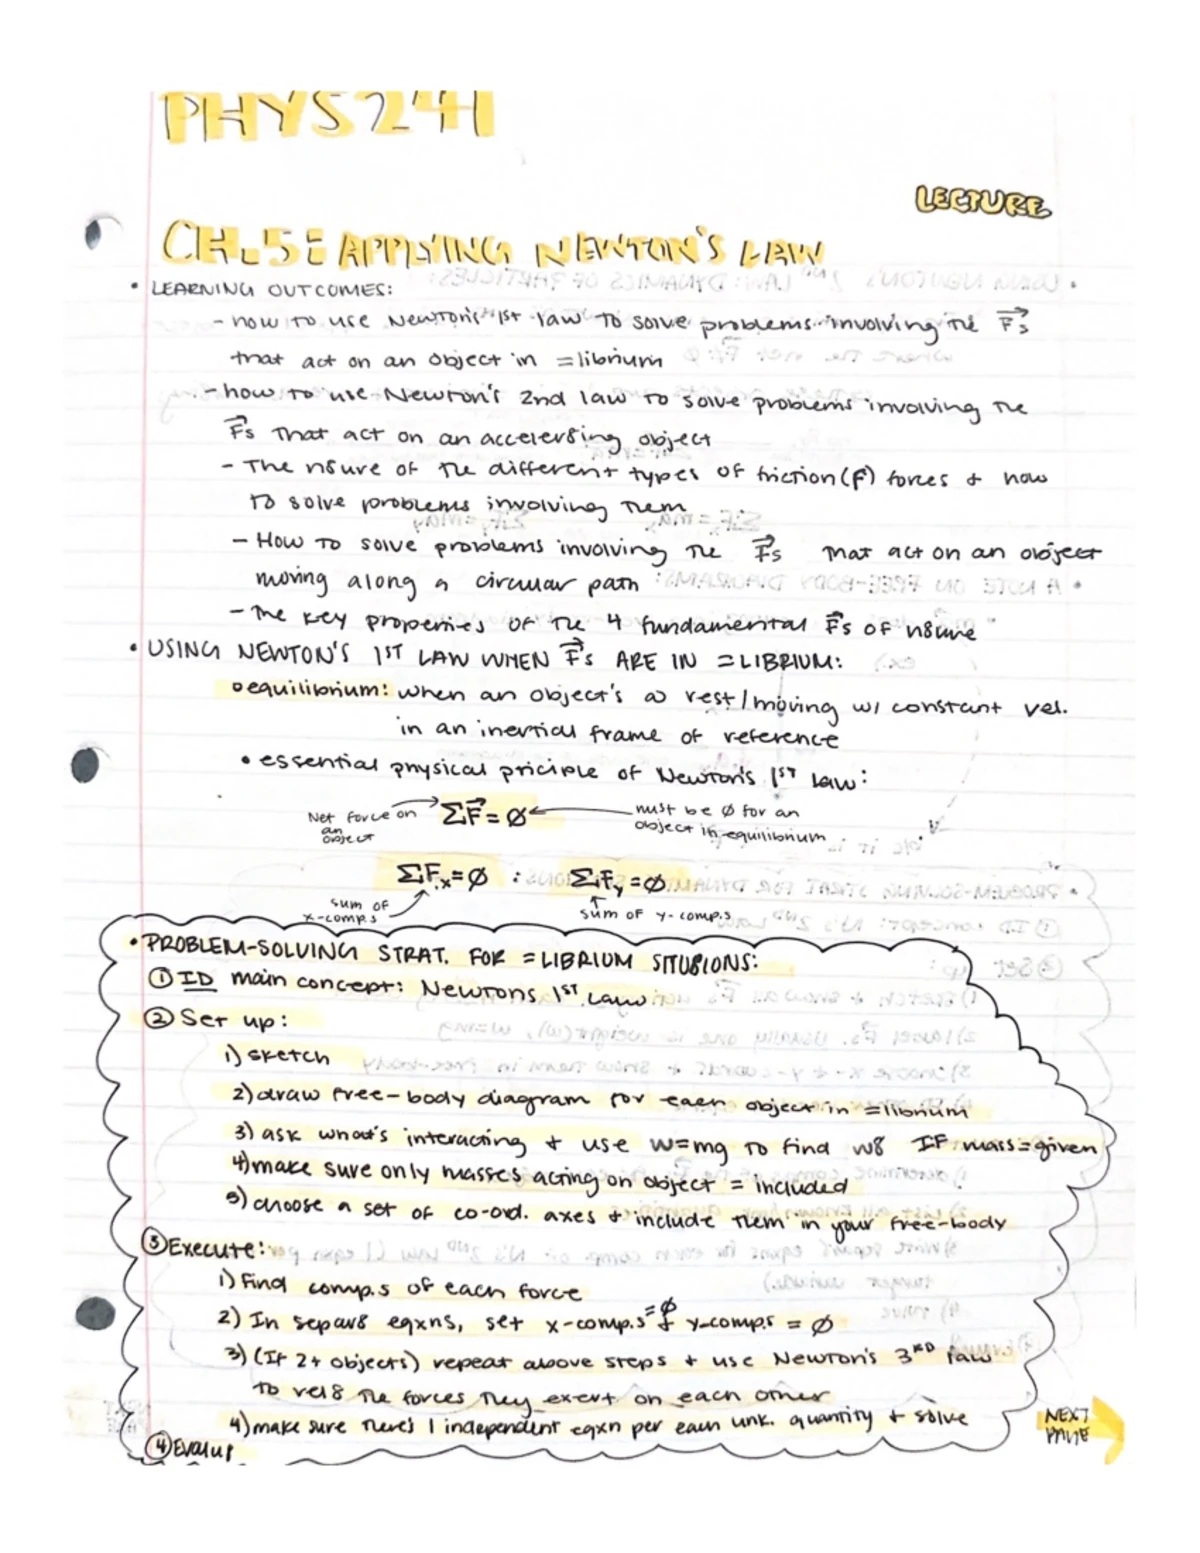 PHYS 241
LECTURE
CH. 5: APPLYING NEWTON'S LAW
• LEARNING OUTCOMES:
- how to use Newton's 1st law to solve problems involving the F⃗s
that act on an object in =librium
- how to use Newton's 2nd law to solve problems involving the
F⃗s that act on an acceler8ing object
- The n8ure of the different types of friction (F) forces + how
to solve problems involving them
- How to solve problems involving the F⃗s that act on an object
moving along a circular path
- The key properties of the 4 fundamental F⃗s of n8ure
• USING NEWTON'S 1ST LAW WHEN F⃗s ARE IN =LIBRIUM:
equilibrium: when an object's @ rest/moving w/ constant vel.
in an inertial frame of reference
• essential physical priciple of Newton's 1ST law:
Net force on an object → ΣF⃗ = Ø ← must be Ø for an object in equilibrium
ΣFx = Ø : ΣFy = Ø
sum of x-comp.s sum of y-comp.s
• PROBLEM-SOLVING STRAT. FOR =LIBRIUM SITU8IONS:
① ID main concept: Newtons 1ST Law
② Set up:
1) sketch
2) draw free-body diagram for each object in =librium
3) ask what's interacting + use w=mg to find w8 IF mass=given
4) make sure only masses acting on object = included
5) choose a set of co-ord. axes + include them in your free-body
③ Execute:
1) Find comp.s of each force
2) In separ8 eqxns, set x-comp.s =Ø & y-comp.s = Ø
3) (If 2+ objects) repeat above steps + use Newton's 3RD law
to rel8 the forces they exert on each other
4) make sure there's 1 independent eqxn per each unk. quantity + solve
NEXT PAGE
④